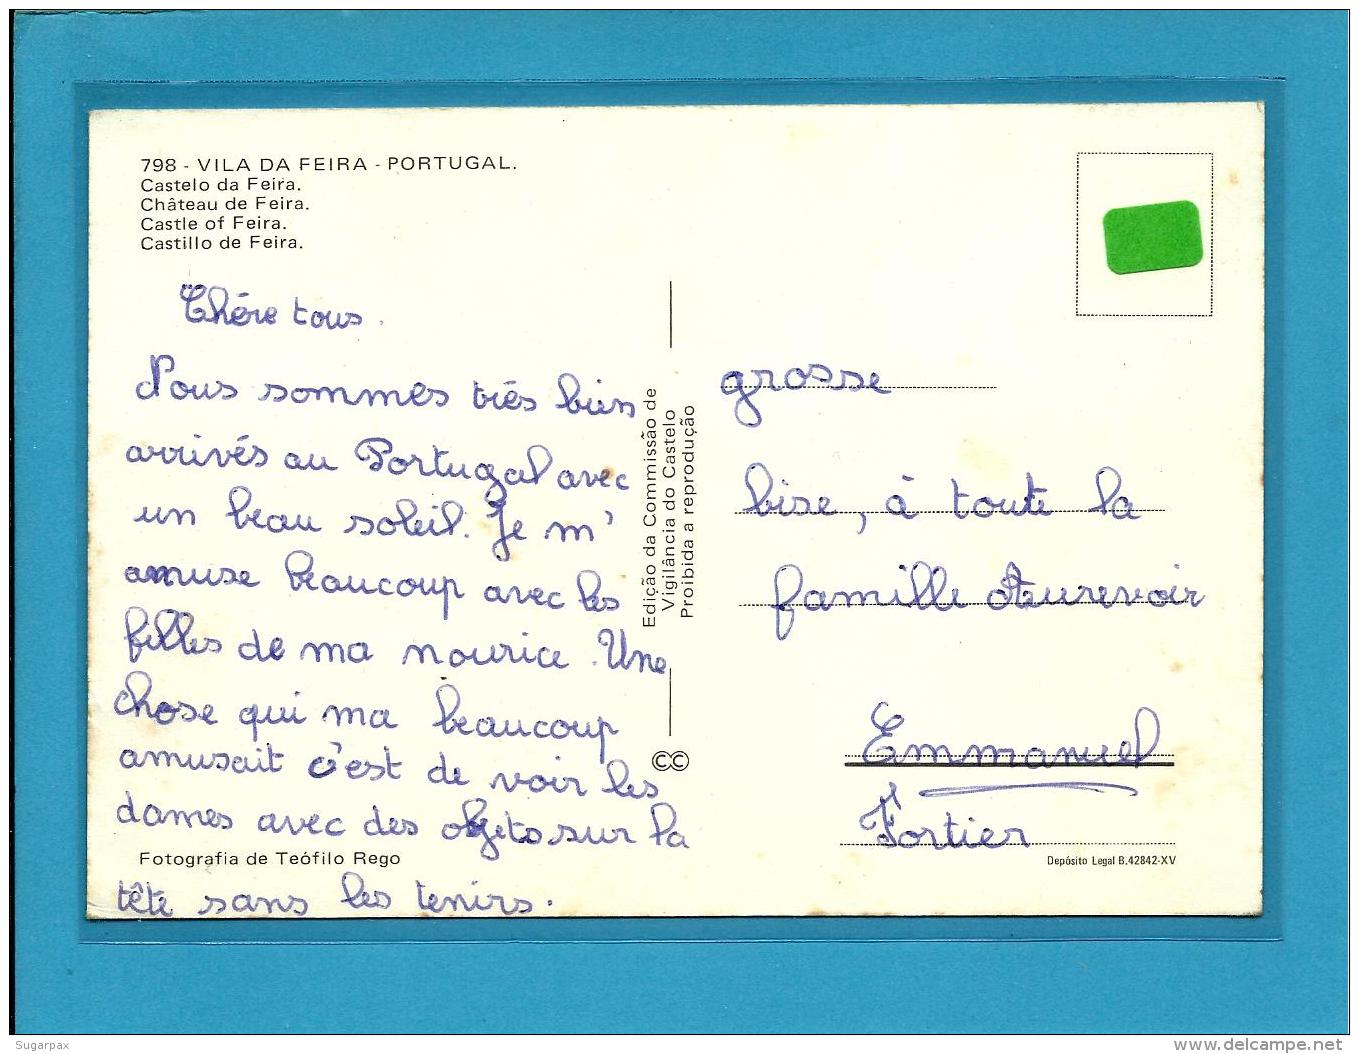 798 - VILA DA FEIRA - PORTUGAL.
Castelo da Feira.
Château de Feira.
Castle of Feira.
Castillo de Feira.
Chére tous.
Nous sommes trés bien
arrivés au Portugal avec
un beau soleil. Je m'
amuse beaucoup avec les
filles de ma nourice. Une
chose qui ma beaucoup
amusait c'est de voir les
dames avec des objets sur la
tête sans les tenirs.
Fotografia de Teófilo Rego
Edição da Commissão de
Vigilância do Castelo
Proibida a reprodução
CC
grosse
bise, à toute la
famille Aurevoir
Emmanuel
Fortier
Depósito Legal B.42842-XV
Sugarpax
www.delcampe.net